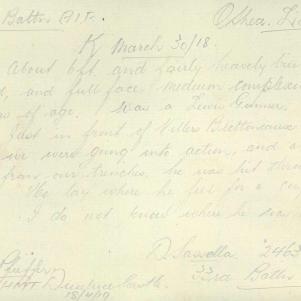 Battn A.I.F. O'Shea.
K March 30/18.
About 6ft. and fairly heavily
and full face medium complexion
of age. Was a Lewis Gunner.
Just in front of Villers Bretonneaux
we were going into action, and
from our trenches, he was hit
He lay where he fell for a
I do not know where he
D. 2463
33rd Battn
18/4/19